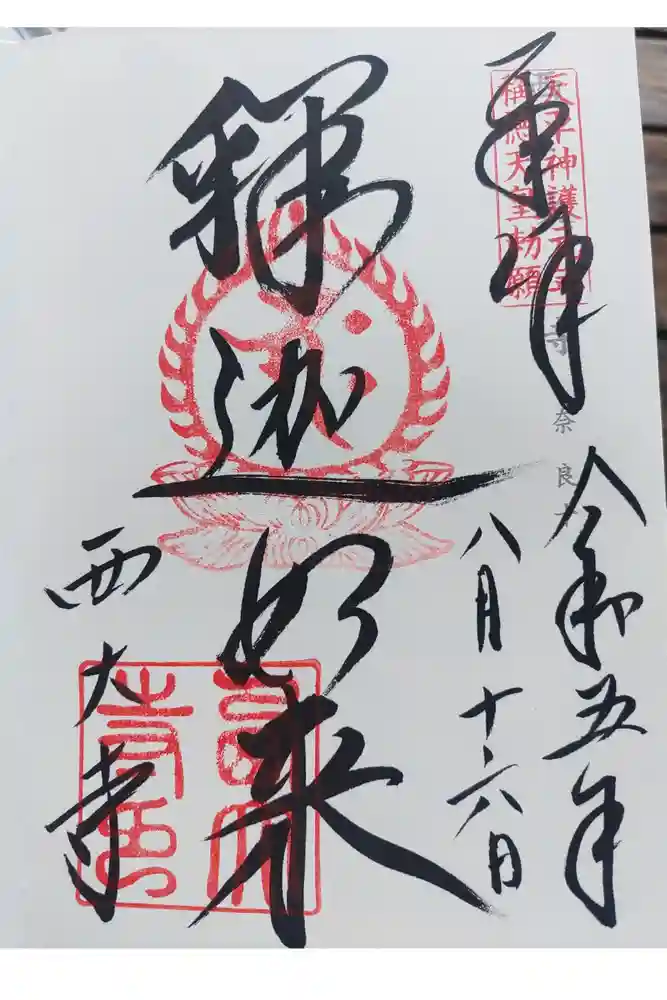 奉拝
天平神護元年
稱德天皇勅願
寺 奈良
令和五年
八月十六日
釋迦如来
西大寺